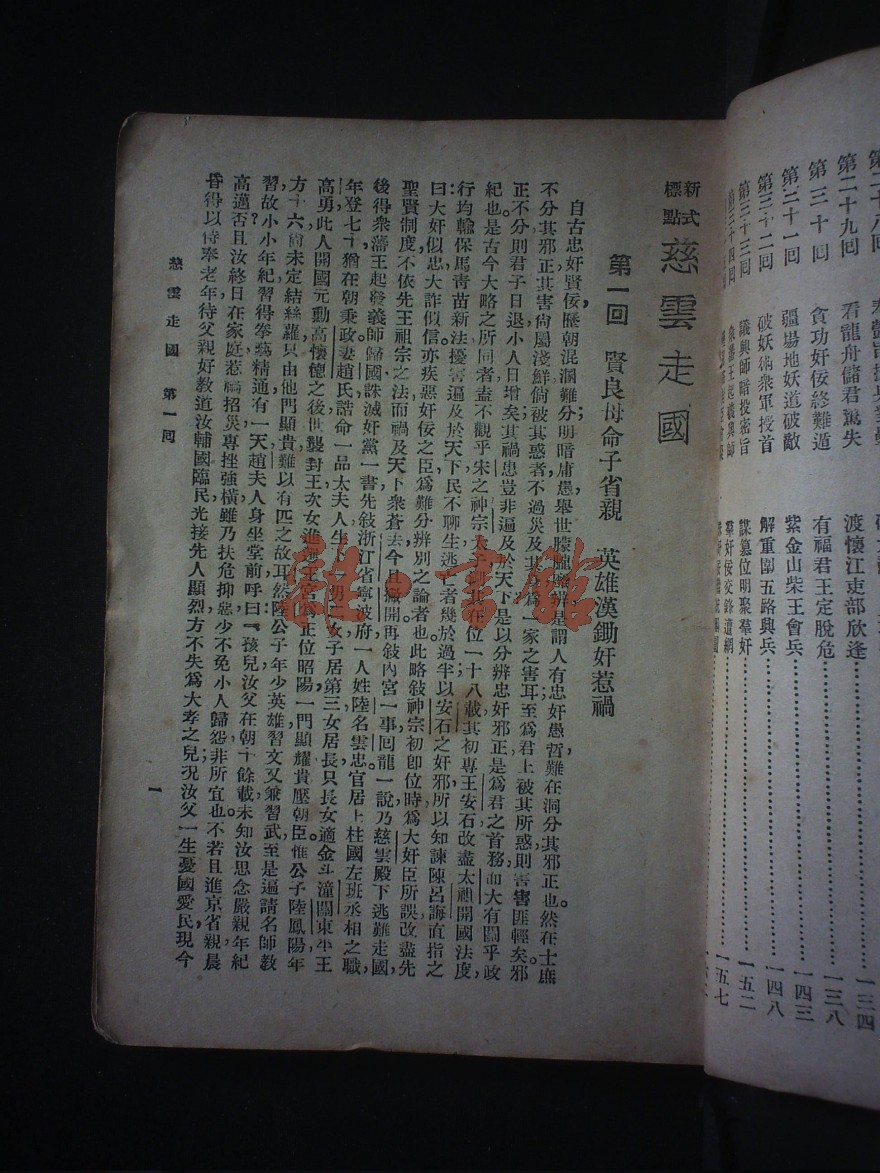 第二十九回 看龍舟儲君驚失 渡懷江吏部欣逢 一三四
第三十回 貪功奸佞終難遁 有福君王定脫危 一三八
第三十一回 疆場地妖道破敵 紫金山柴王會兵 一四三
第三十二回 破妖術衆軍授首 解重圍五路興兵 一四八
第三十三回 議興師暗投密旨 謀篡位明聚羣奸 一五二
羣奸佞交鋒遭網 一五七
新式標點 慈雲走國
第一回 賢良母命子省親 英雄漢鋤奸惹禍
自古忠奸賢佞，歷朝混溷難分，明暗庸愚，舉世朦朧
是謂人有忠奸愚哲，難在洞分其邪正也。然在士庶
不分其邪正，其害尙屬淺鮮，倘被其惑者，不過災及其
爲一家之害耳；至爲君上被其所惑，則害匪輕矣。邪
正不分，則君子日退，小人日增矣。其禍患豈非遍及於天下，是以分辨忠奸邪正，是爲君之首務，而大有關乎政
紀也。是古今大略之所同者，盍不觀乎宋之神宗
在位一十八載，其初專王安石，改盡太祖開國法度，
行均輸保馬靑苗新法，擾害遍及於天下，民不聊生，逃亡者幾於過半，以安石之奸邪，所以知諫陳呂誨直指之
曰：大奸似忠，大詐似信，亦疾惡奸佞之臣，爲難分辨別之論者也。此略敍神宗初卽位時，爲大奸臣所誤，改盡先
聖賢制度，不依先王祖宗之法，而禍及天下衆蒼去。今且
開，再敍內宮一事，回龍一說，乃慈雲殿下逃難走國，
後得衆藩王起發義師歸國，誅滅奸黨一書。先敍浙江省寧波府一人，姓陸名雲忠，官居上柱國左班丞相之職，
年登七十，猶在朝秉政，妻趙氏，誥命一品太夫人，生下一男三女，子居第三，女居長，只長女適金斗潼關東平王
高勇，此人開國元勳高懷德之後，世襲封王，次女進
王宮，爲正位昭陽，一門顯耀，貴壓朝臣。惟公子陸鳳陽，年
方十六，尙未定結絲蘿，只由他門顯貴，難以有匹之故耳。然陸公子年少英雄，習文又兼習武，至是遍請名師敎
習，故小小年紀，習得拳藝精通。有一天，趙夫人身坐堂前，呼曰：『孩兒，汝父在朝十餘載，未知汝思念嚴親年紀
高邁否？且汝終日在家庭惹禍招災，專挫強橫，雖乃扶危抑惡，少不免小人歸怨，非所宜也。不若且進京省親，晨
昏得以侍奉老年，待父親好敎道汝輔國臨民，光接先人顯烈，方不失爲大孝之兒；況汝父一生憂國愛民，現今
慈雲走國 第一回 一